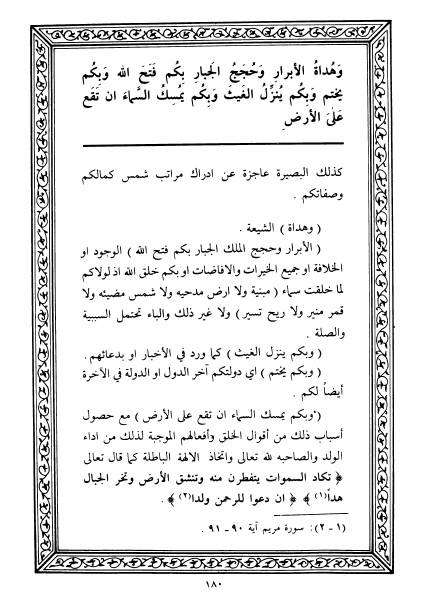 وَهُداةُ الأبرارِ وَحُجَجُ الجبارِ بِكُم فَتَحَ الله وَبِكُم
يختم وَبِكُم يُنزِّلُ الغيثَ وَبِكُم يُمسِكُ السَّماءَ ان تَقَع
عَلىَ الأرضِ
كذلك البصيرة عاجزة عن ادراك مراتب شمس كمالكم
وصفاتكم .
( وهداة ) الشيعة .
( الأبرار وحجج الملك الجبار بكم فتح الله ) الوجود او
الخلافة او جميع الخيرات والافاضات او بكم خلق الله اذ لولاكم
لما خلقت سماء ( مبنية ولا ارض مدحيه ولا شمس مضيئه ولا
قمر منير ولا ريح تسير ) ولا غير ذلك والباء تحتمل السببية
والصلة .
( وبكم ينزل الغيث ) كما ورد في الأخبار او بدعائهم.
( وبكم يختم ) اي دولتكم آخر الدول او الدولة في الآخرة
أيضاً لكم .
(وبكم يمسك السماء ان تقع على الأرض ) مع حصول
أسباب ذلك من أقوال الخلق وأفعالهم الموجبة لذلك من اداء
الولد والصاحبه لله تعالى واتخاذ الالهة الباطلة كما قال تعالى
﴿ تكاد السموات يتفطرن منه وتنشق الأرض وتخر الجبال
هداً(١) ﴾ ﴿ ان دعوا للرحمن ولدا(٢) ﴾ .
(١ - ٢): سورة مريم آية ٩٠ - ٩١ .
١٨٠